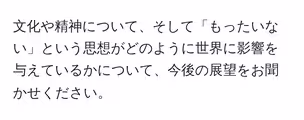 文化や精神について、そして「もったいな
い」という思想がどのように世界に影響を
与えているかについて、今後の展望をお聞
かせください。